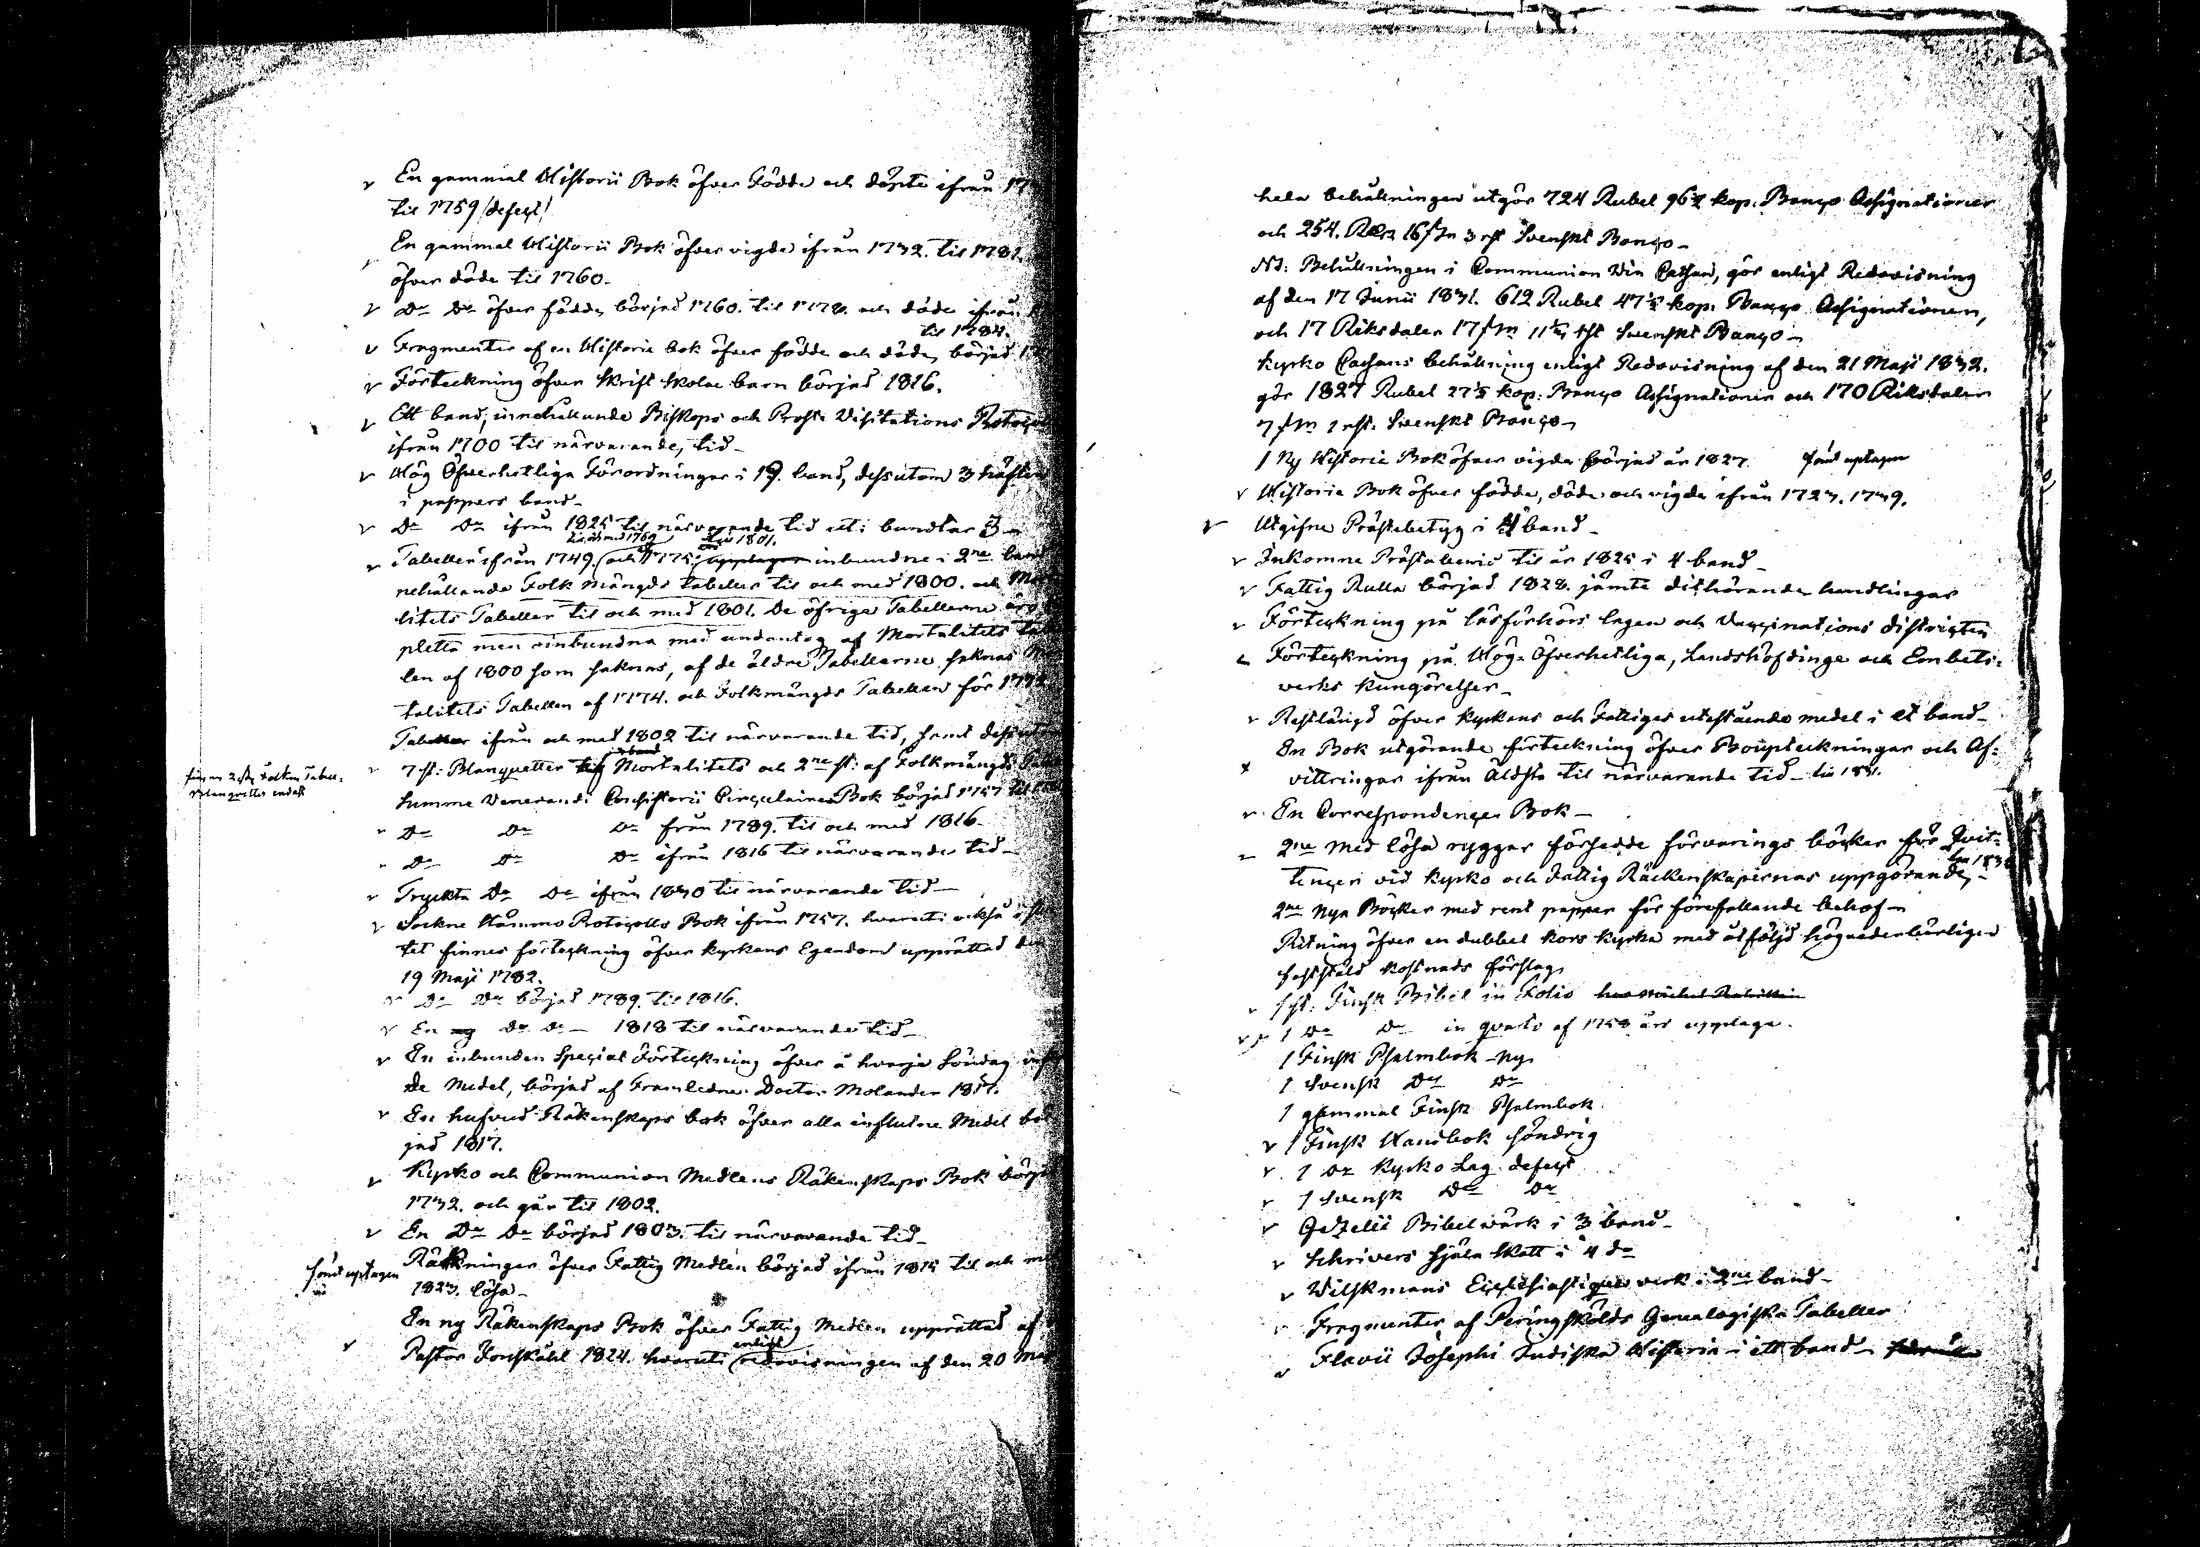 En gammal Historii Bok öfver Födde och döpte ifrån 17
til 1759 /defect/
En gammal Historii Bok öfver vigde ifrån 1732. til 1781.
öfver döde til 1760.
Do Do öfver födde, börjad 1760. til 1778. och döde ifrån
til 1784.
Fragmenter af en Historie bok öfver födde och döde, börjad
Förteckning öfver Skrift Skole barn börjad 1816.
Ett band, innehållande Biskops och Prosts Visitations
ifrån 1700 til närvarande, tid
Hög Öfverhetliga Förordningar i 19. band, dessutom 3 häften
i pappers band
Do Do ifrån 1825 til närvarande tid uti bundtar 3
til och med 1769 til 1801.
Tabeller ifrån 1749. och 1775. inbundne i 2ne band
nehållande Folk mängds tabeller til och med 1800. och
litets Tabeller til och med 1801. De öfriga Tabellerne äro
pletta men oinbundna med undantag af Mortalitets
len af 1800 som saknas, af de äldre Tabellerne saknas
talitets Tabellen af 1774. och Folkmängds Tabellen för
Tabeller ifrån och med 1802 til närvarande tid, samt
finnes 2 st Folkm: Tabell:
Blanquetter endast
7 st: Blanquetter Mortalitets och 2ne st: af Folkmängds
Summe Venerandi Consistorii Circulairer Bok börjad 1757
Do Do Do från 1789. til och med 1816
Do Do Do ifrån 1816 til närvarande tid
Tryckta Do Do ifrån 1830 til närvarande tid
Sockne Stämmo Protocolls Bok ifrån 1757. hvaruti också
tet finnes förteckning öfver kyrkans Egendom upprättad den
19 Maji 1782.
Do Do börjad 1789. til 1816.
En Do Do 1818 til närvarande tid
En inbunden Special Förteckning öfver å hvarje Söndag
de Medel, börjad af Framledne Doctor Molander 1817.
En hufvud Räkenskaps bok öfver alla influtne Medel bör
jad 1817.
Kyrko och Communion Medlens Räkenskaps Bok
1732. och går til 1802.
En Do Do börjad 1803. til närvarande tid
Räkningar öfver Fattig Medlen börjad ifrån 1815 til och
1823. lösa
En ny Räkenskaps Bok öfver Fattig Medlen upprättad af
enligt
Pastor 1824. hvaruti redovisningen af den 20
hela behållningen utgör 724 Rubel 96½ kop. Banco Assignationer
och 254. 16 3 rst Svenskt Banco
NB: Behållningen i Communion Vin Cassan, gör enligt Redovisning
af den 17 Junii 1831. 612 Rubel 47½ kop. Banco Assignationer,
och 17 Riksdaler 17 Svenskt Banco
Kyrko Cassans behållning enligt Redovisning af den 21 Maji 1832.
gör 1827 Rubel 27½ kop: Banco Assignationer och 170 Riksdaler
7 1 rst. Svenskt Banco
1 Ny Historie Bok öfver vigde börjad år 1827.
Historie Bok öfver födde, döde och vigde ifrån 1723. 1739.
Utgifne Prästebetyg i 4 band
Inkomne Prästabevis til år 1825 i 4 band
Fattig Rulla börjad 1828. jämte dithörande handlingar
Förteckning på läsförhörs lagen och Vaccinations districten
Förteckning på Hög Öfverhetliga, Landshöfdinge och Embets:
verks kungörelser
Restlängd öfver kyrkans och Fattiges utestående medel i et band
En Bok utgörande förteckning öfver Bouptekningar och Af:
vittringar ifrån Äldsta til närvarande tid til 1831.
En Correspondence Bok
2ne med lösa ryggar försedde förvarings böcker för Qvit:
tencer vid kyrko och Fattig Räckenskapernas uppgörande,
2ne Nya Böcker med rent papper för förefallande behof
Ritning öfver en dubbel kors kyrka med åtföljd högvederbörligen
fastställd kostnads förslag
1 st. Finsk Bibel in Folio
1 Do Do in qvarto af 1758 års upplaga.
1 Finsk Psalmbok ny
1 Svensk Do Do
1 gammal Finsk Psalmbok
1 Finsk Handbok söndrig
1 Do Kyrko Lag. defect
1 Svensk Do Do
Gezelii Bibelwärk i 3 band
Schrivers Själa Skatt i 4 do
Wilskmans verk i 2ne band
Fragmenter af Peringskölds Genealogiska Tabeller
Flavii Josephi Judiska Historia i ett band